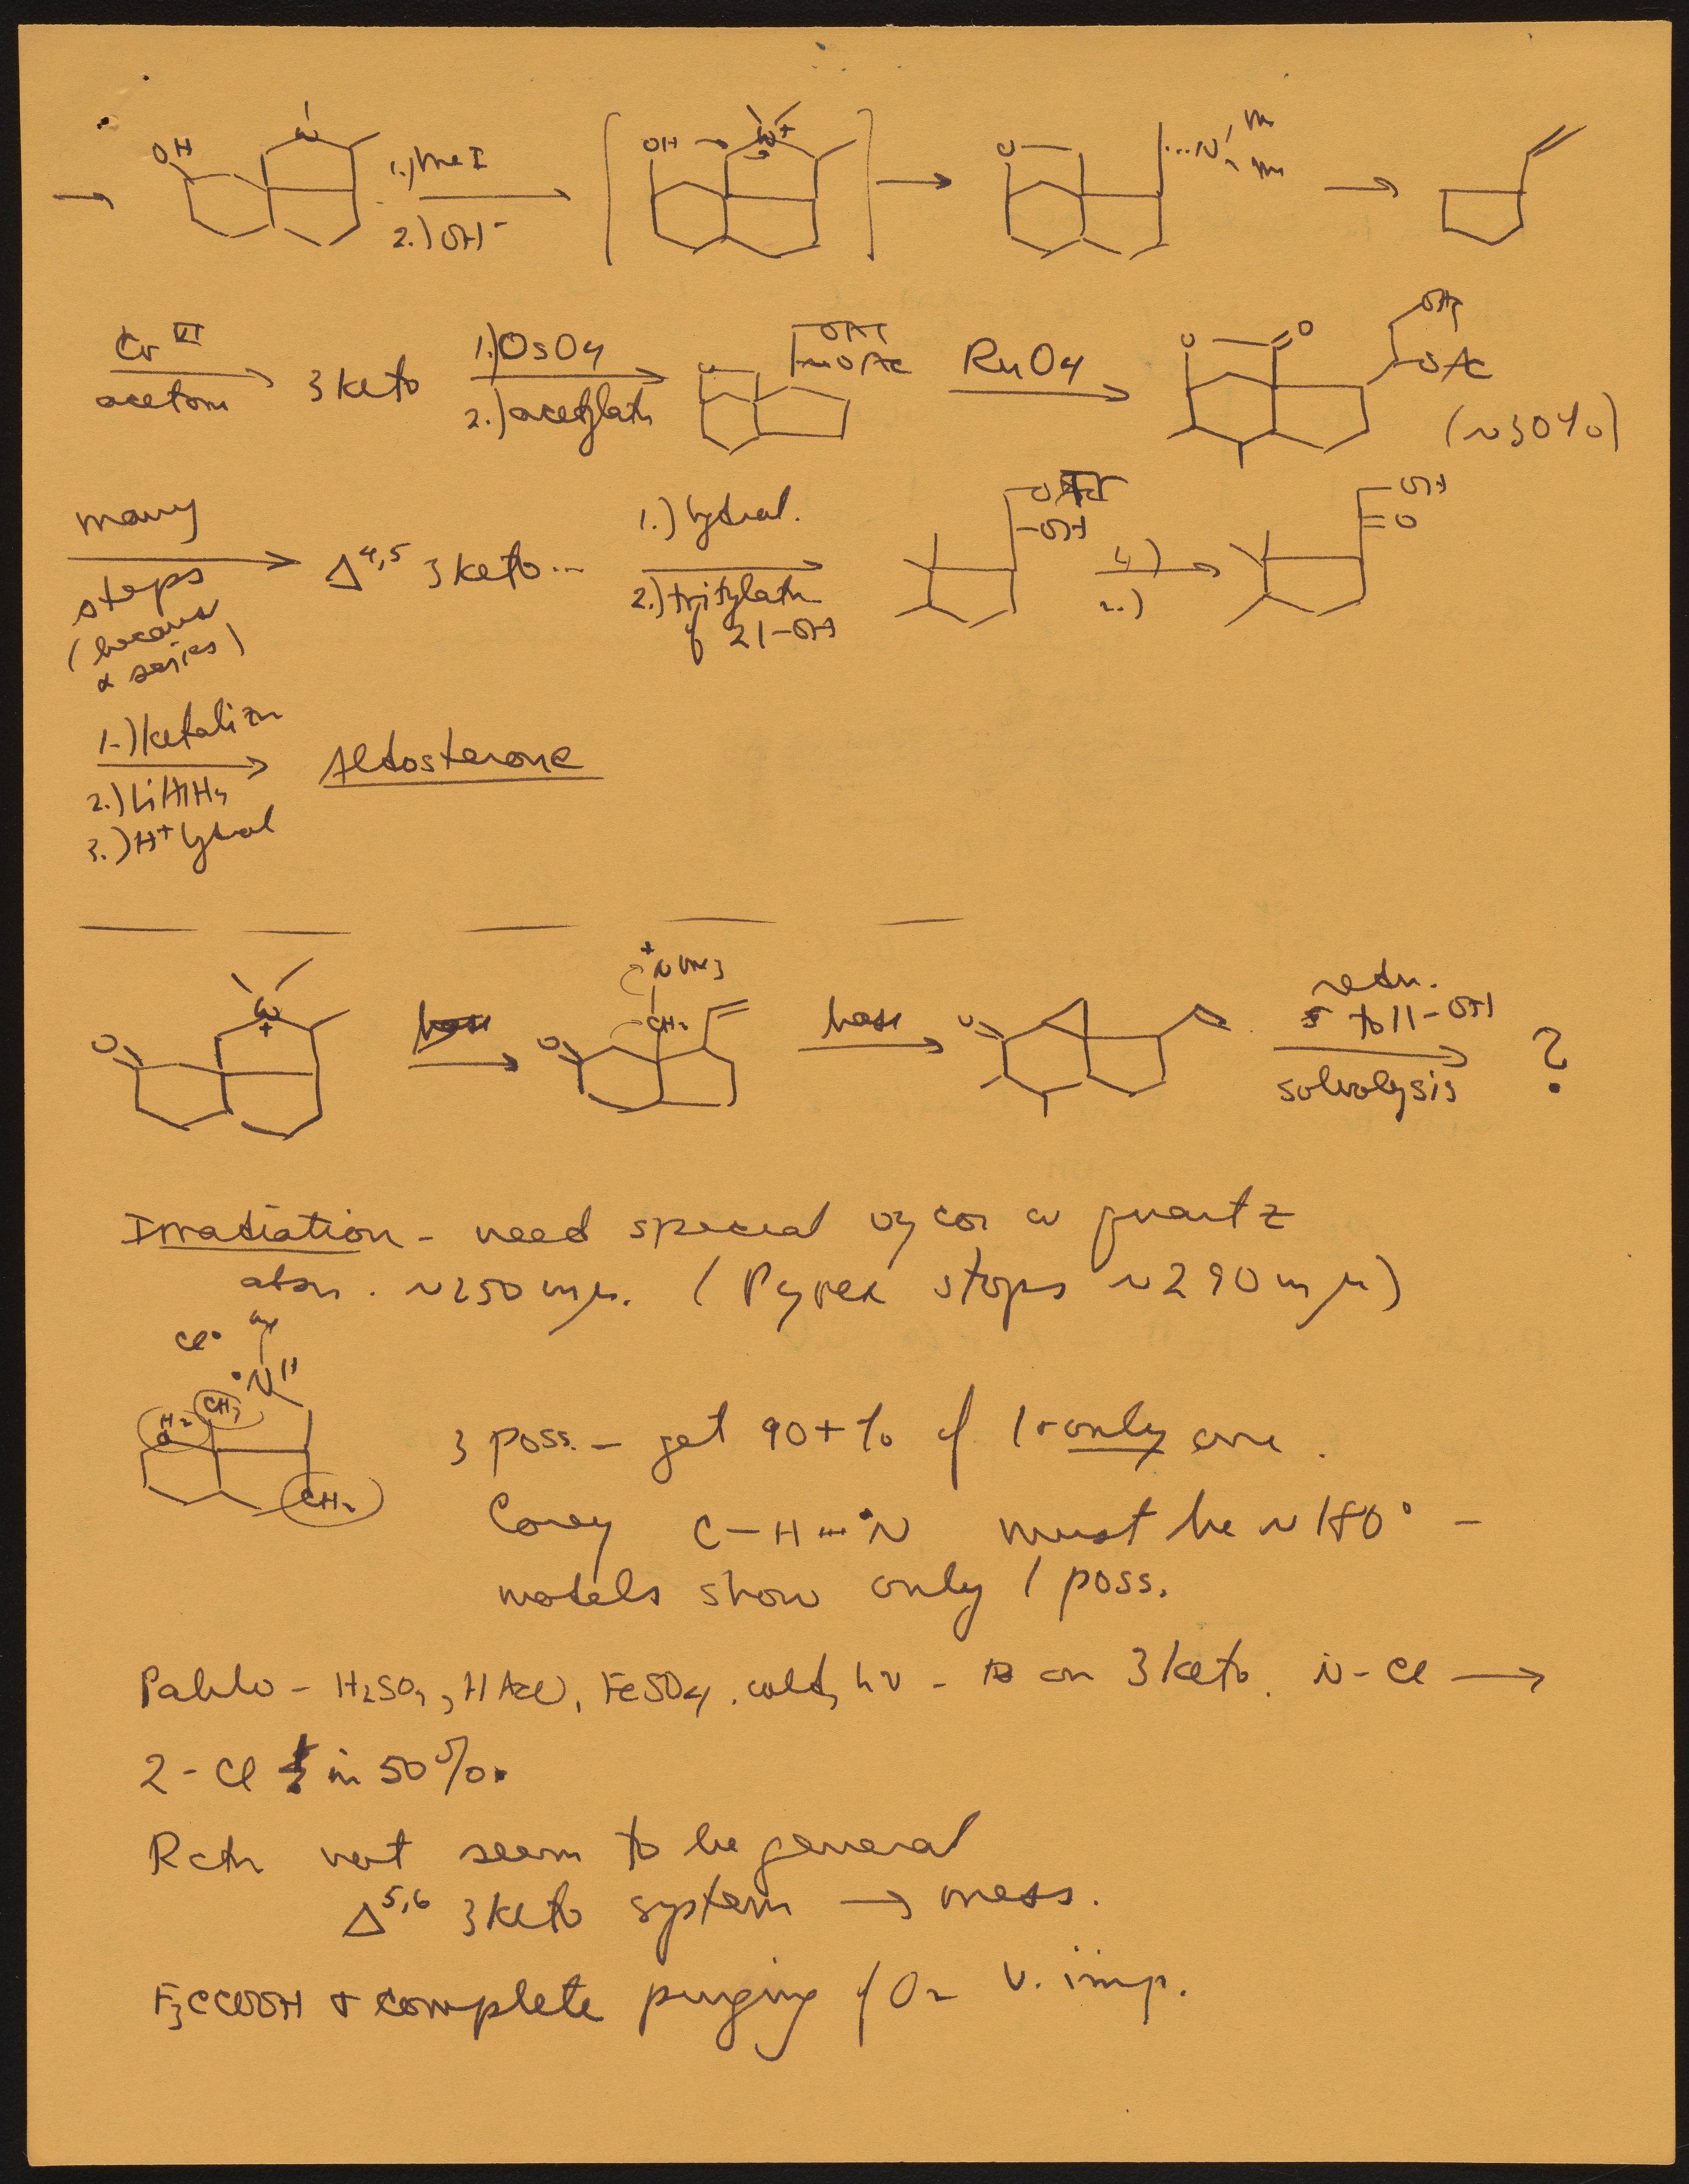 → OH N 1.) MeI 2.) OH⁻ [ OH N+ ] → O ...N Me Me →
Cr VI acetone → 3 keto 1.) OsO4 2.) acetylatn → O OAc OAc RuO4 → O O OAc OAc (~30%)
many steps (because α series) → Δ4,5 3 keto... 1.) hydrol. 2.) tritylatn of 21-OH → OTr -OH 1.) 2.) → OH =O
1.) ketalizn 2.) LiAlH4 3.) H+ hydrol → Aldosterone
O N+ → O +NMe3 CH2 base → O redn. to 11-OH solvolysis → ?
Irradiation - need special vycor or quartz
absn. ~250 mμ. (Pyrex stops ~290 mμ)
Cl• Me •N H
H2 CH3 CH2
3 poss. - get 90+% of 1 + only one.
Corey C-H---•N must be ~180° -
models show only 1 poss.
Pablo - H2SO4, HAc, FeSO4, cold, hν - on 3 keto. N-Cl →
2-Cl in 50%.
Rctn not seem to be general
Δ5,6 3 keto system → mess.
F3CCOOH + complete purging of O2 v. imp.